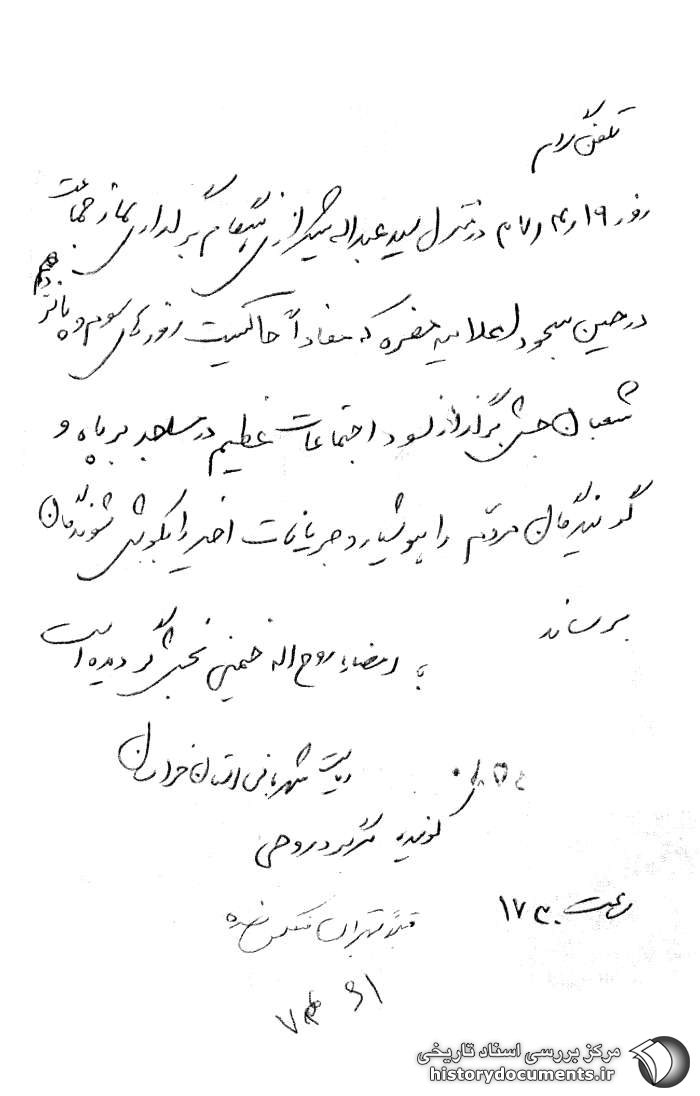 تلفنگرام
روز ۱۹/۴/۷ در منزل سید عبداله شیرازی هنگام برگذاری نماز جماعت
در حین سجود اعلامیه مضره که مفاداً حاکیست روزهای سوم و پانزدهم
شعبان جشن برگذار نشود اجتماعات عظیم در مساجد برپا و
گویندگان مردم را هوشیار و جریانات اخیر را بگوش شنوندگان
برسانند
به امضاء روح اله خمینی پخش گردیده است
ریاست شهربانی استان خراسان
گوینده
ساعت ۱۷۳۰
قبلاً تهران منعکس شده
مرکز بررسی اسناد تاریخی
historydocuments.ir